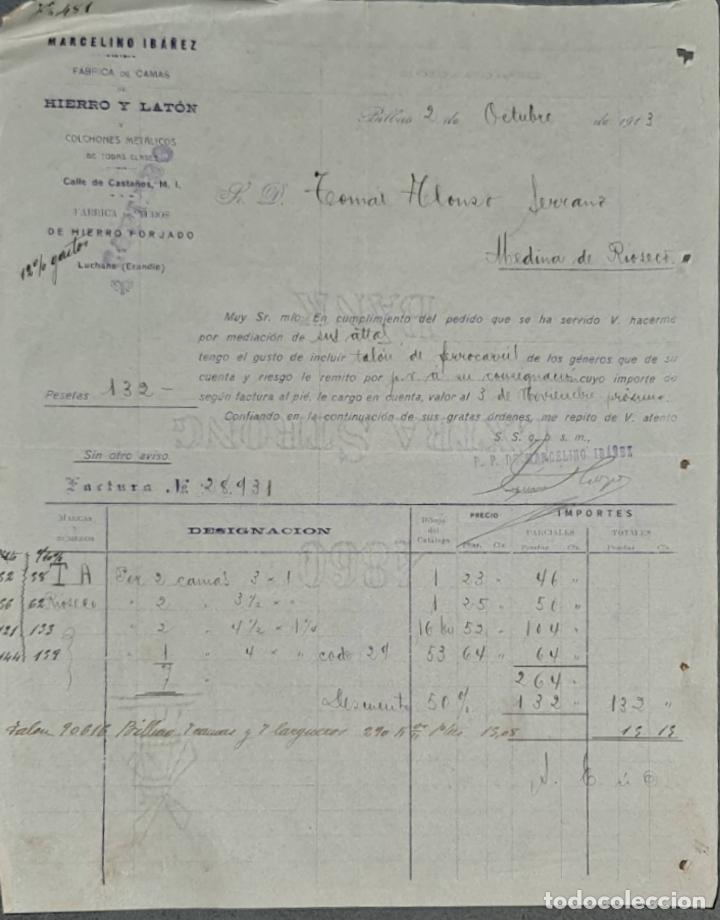 MARCELINO IBÁÑEZ
FÁBRICA DE CAMAS
DE
HIERRO Y LATÓN
Y
COLCHONES METÁLICOS
DE TODAS CLASES
Calle de Castaños, M. I.
FÁBRICA DE TUBOS
DE HIERRO FORJADO
Luchana (Erandio)
12% gastos
Bilbao 2 de Octubre de 1913
S. D. Tomás Alonso Serrano
Medina de Rioseco
Muy Sr. mío: En cumplimiento del pedido que se ha servido V. hacerme
por mediación de
tengo el gusto de incluir talón de ferrocarril de los géneros que de su
cuenta y riesgo le remito por p.v. a su consignación cuyo importe de
Pesetas 132 —
según factura al pié, le cargo en cuenta, valor al 3 de Noviembre próximo.
Confiando en la continuación de sus gratas órdenes, me repito de V. atento
S. S. q. b. s. m.,
P. P. DE MARCELINO IBÁÑEZ
Sin otro aviso
Factura No. 28.931
MARCAS Y NÚMEROS
DESIGNACION
Dibujo del Catálogo
PRECIO
Ptas. Cts.
IMPORTES
PARCIALES
Pesetas Cts.
TOTALES
Pesetas Cts.
52 58 T A Por 2 camas 3 × 1 1 23 " 46 "
56 62 Rioseco " 2 " 3½ " " 1 25 " 50 "
121 133 " 2 " 4½ " 1¼ 16 52 " 104 "
144 159 " 1 " 4 " " codo 29 53 64 " 64 "
7 264 "
Descuento 50% 132 " 132 "
Talón 90616 Bilbao 7 camas y 7 largueros 290 13,08 13 13
todocoleccion
todocoleccion.net